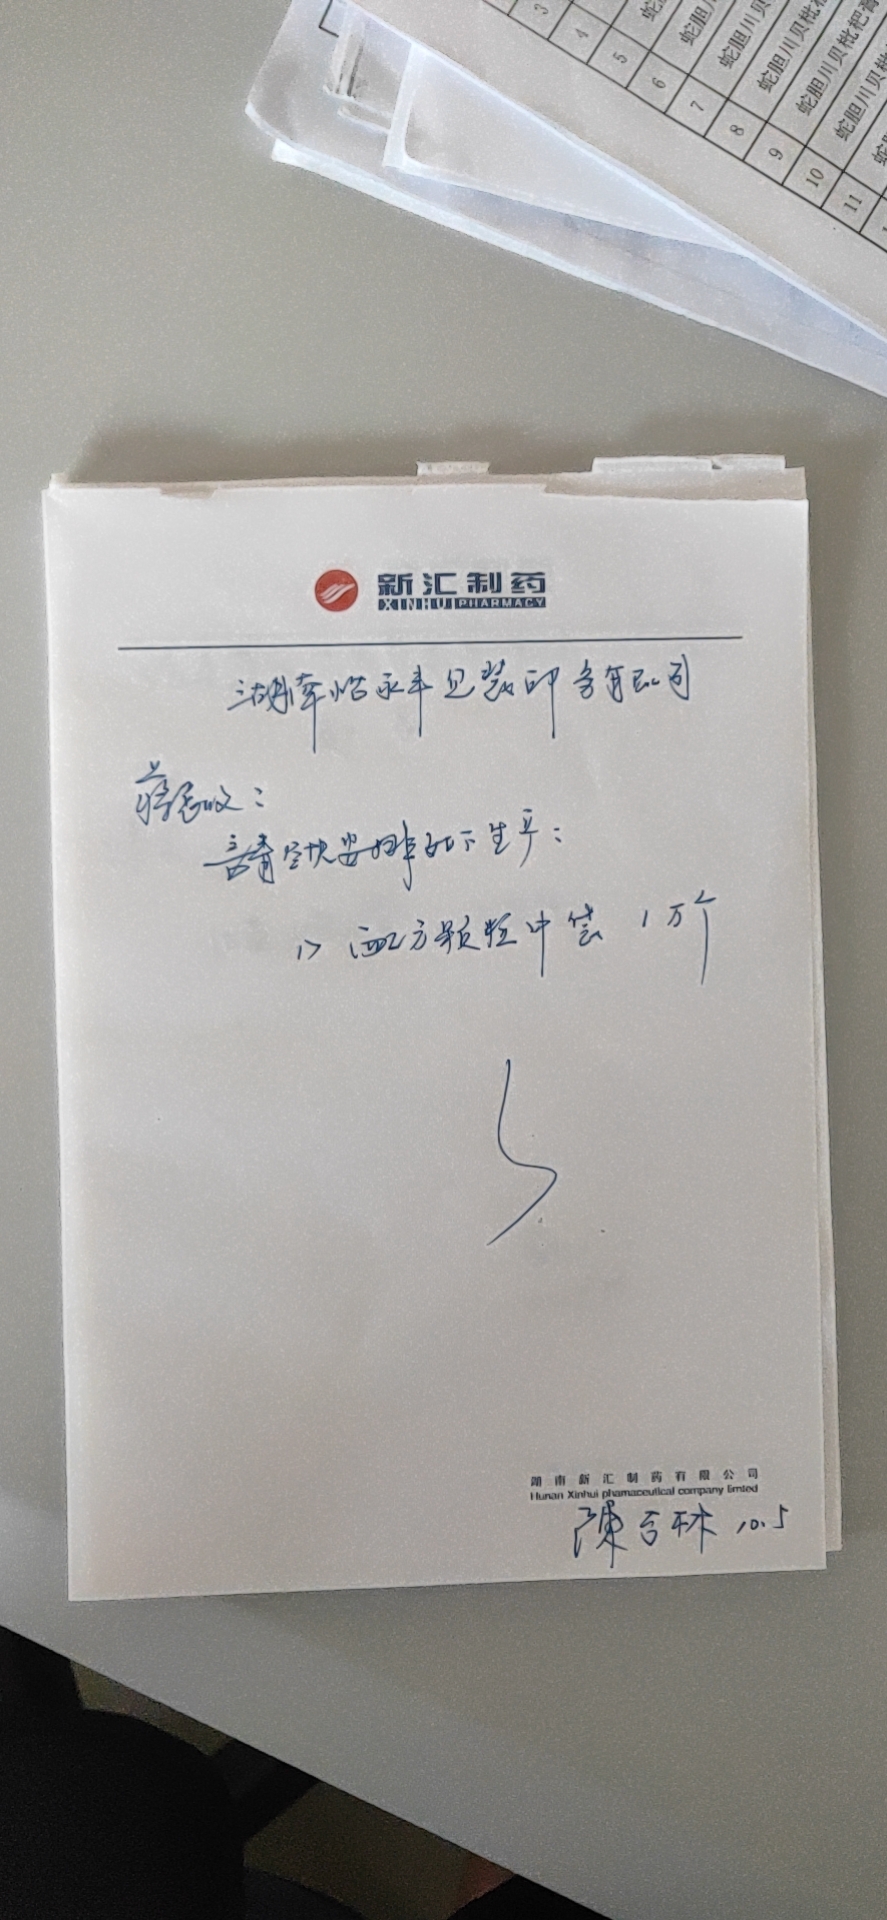 3
4
5 蛇
6 蛇胆川
7 蛇胆川贝
8 蛇胆川贝枇杷
9 蛇胆川贝枇杷膏
10 蛇胆川贝
11 蛇
新汇制药
XINHUI PHARMACY
永丰包装印务有限公司
蒋
请尽快安排如下生产：
1> 配方颗粒中袋 1万个
湖南新汇制药有限公司
Hunan Xinhui phamaceutical company limted
陳吉林 10.5